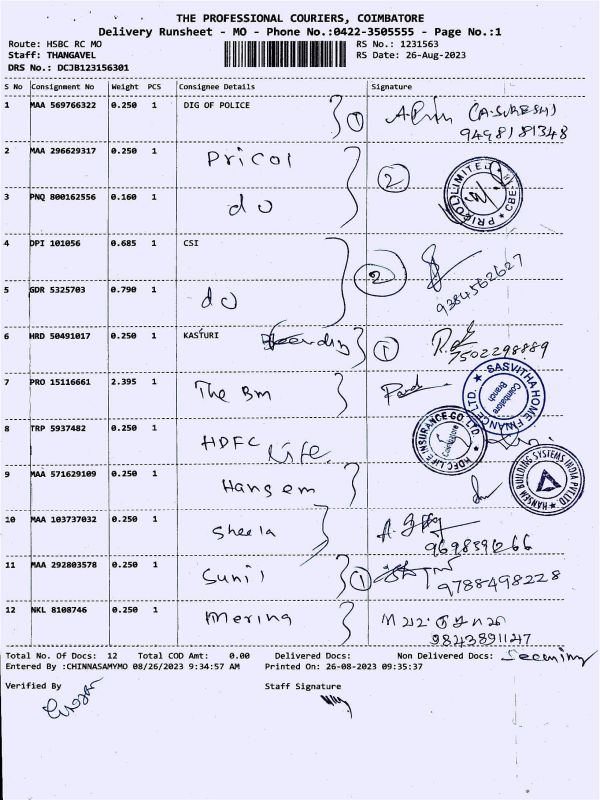 THE PROFESSIONAL COURIERS, COIMBATORE
Delivery Runsheet - MO - Phone No.:0422-3505555 - Page No.:1
Route: HSBC RC MO RS No.: 1231563
Staff: THANGAVEL RS Date: 26-Aug-2023
DRS No.: DCJB123156301
S No Consignment No Weight PCS Consignee Details Signature
1 MAA 569766322 0.250 1 DIG OF POLICE 1 (A.SURESH)
9498181348
2 MAA 296629317 0.250 1 Pricol 2 PRICOL LIMITED CBE
3 PNQ 800162556 0.160 1 do
4 DPI 101056 0.685 1 CSI 2
9384562627
5 GDR 5325703 0.790 1 do
6 HRD 50491017 0.250 1 KASTURI 1
7502298889
7 PRO 15116661 2.395 1 The Bm SASVITHA HOME FINANCE LTD. Coimbatore Branch
8 TRP 5937482 0.250 1 HDFC Life. HDFC LIFE INSURANCE CO. LTD Coimbatore
9 MAA 571629109 0.250 1 Hansem HANSEM BUILDING SYSTEMS INDIA PVT LTD
10 MAA 103737032 0.250 1 Sheela
9698391266
11 MAA 292803578 0.250 1 Sunil 1 9788498228
12 NKL 8108746 0.250 1 Merina
9843891147
Total No. Of Docs: 12 Total COD Amt: 0.00 Delivered Docs: Non Delivered Docs:
Entered By :CHINNASAMYMO 08/26/2023 9:34:57 AM Printed On: 26-08-2023 09:35:37
Verified By Staff Signature